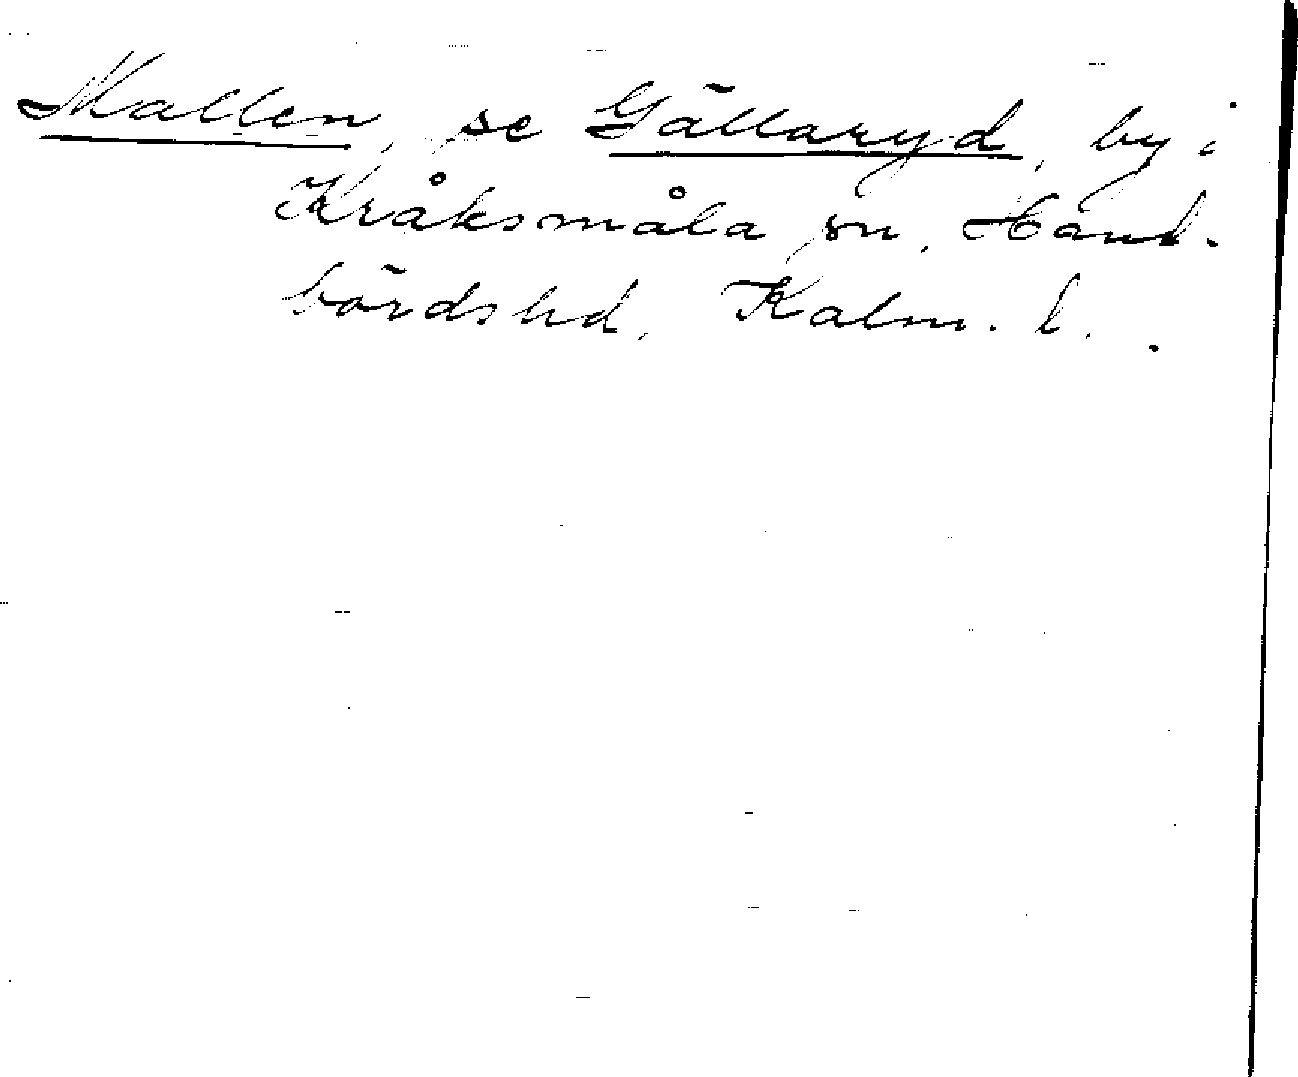 Mallen, se Gällaryd, by i
Kråksmåla sn, Hand-
börds hd, Kalm. l.